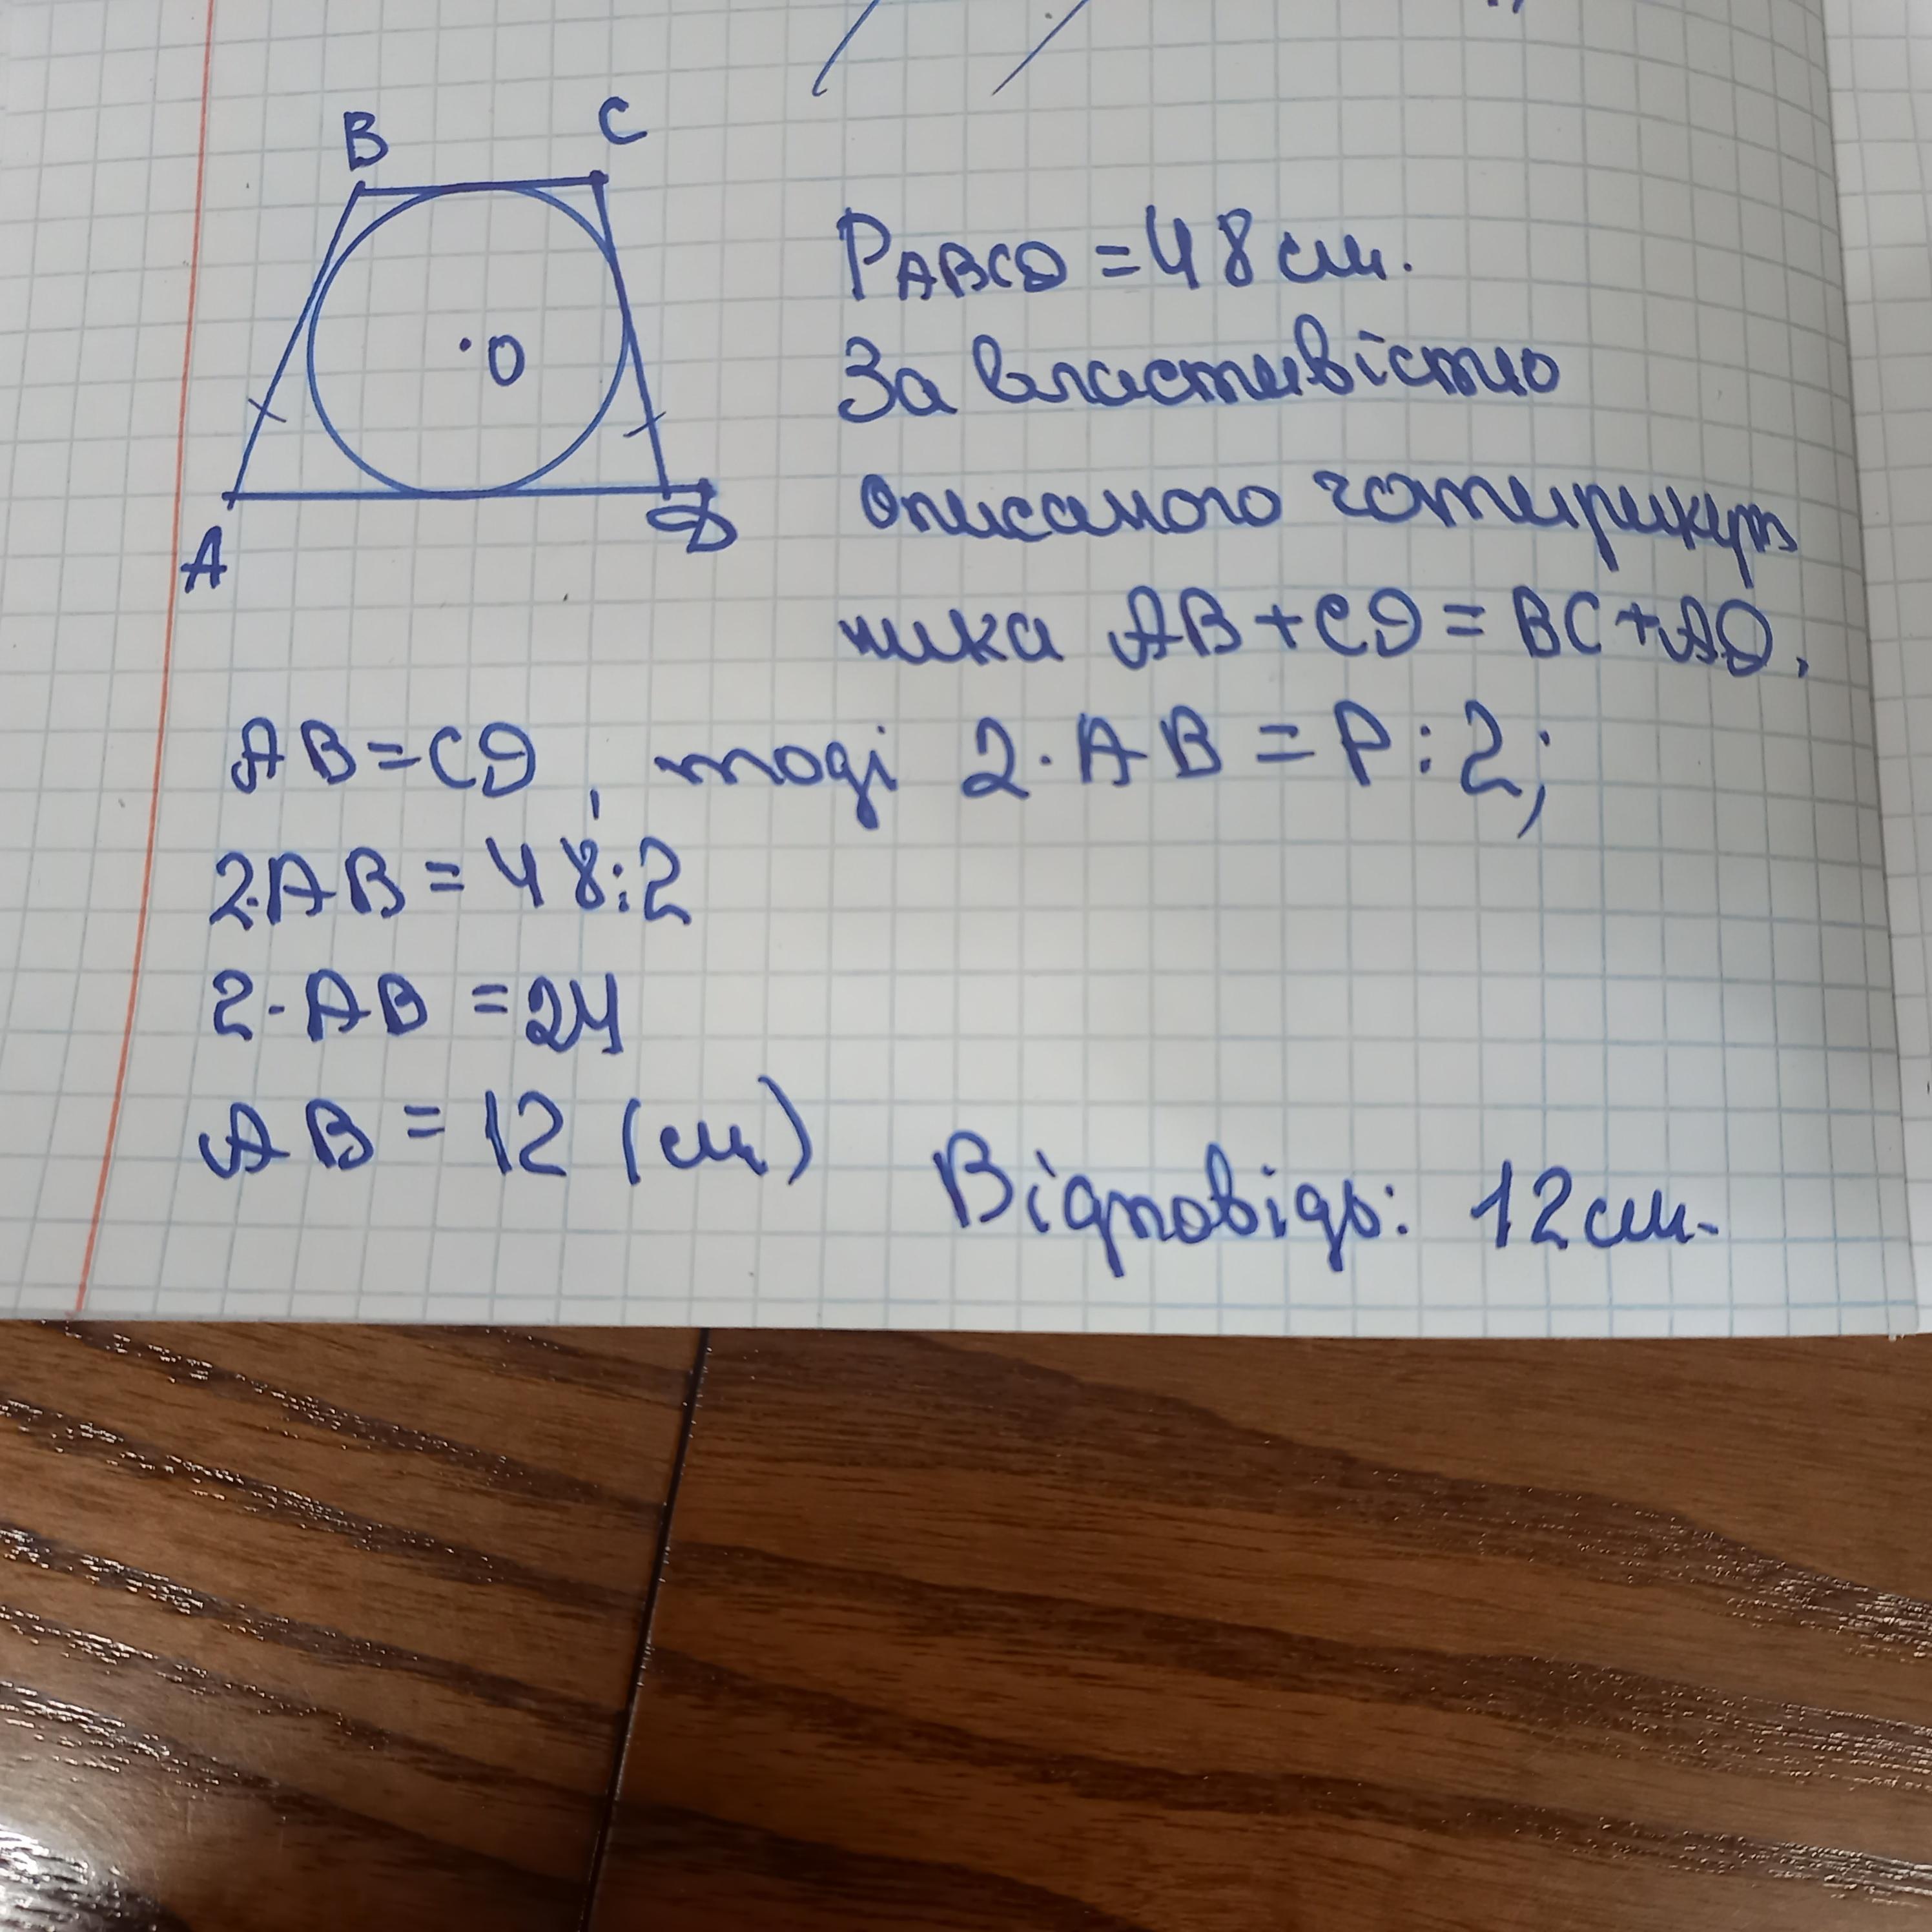 B C
O
A D
P ABCD = 48 см.
За властивістю
описаного чотирикут
ника AB + CD = BC + AD,
AB = CD, тоді 2·AB = P : 2;
2·AB = 48:2
2·AB = 24
AB = 12 (см)
Відповідь: 12 см.